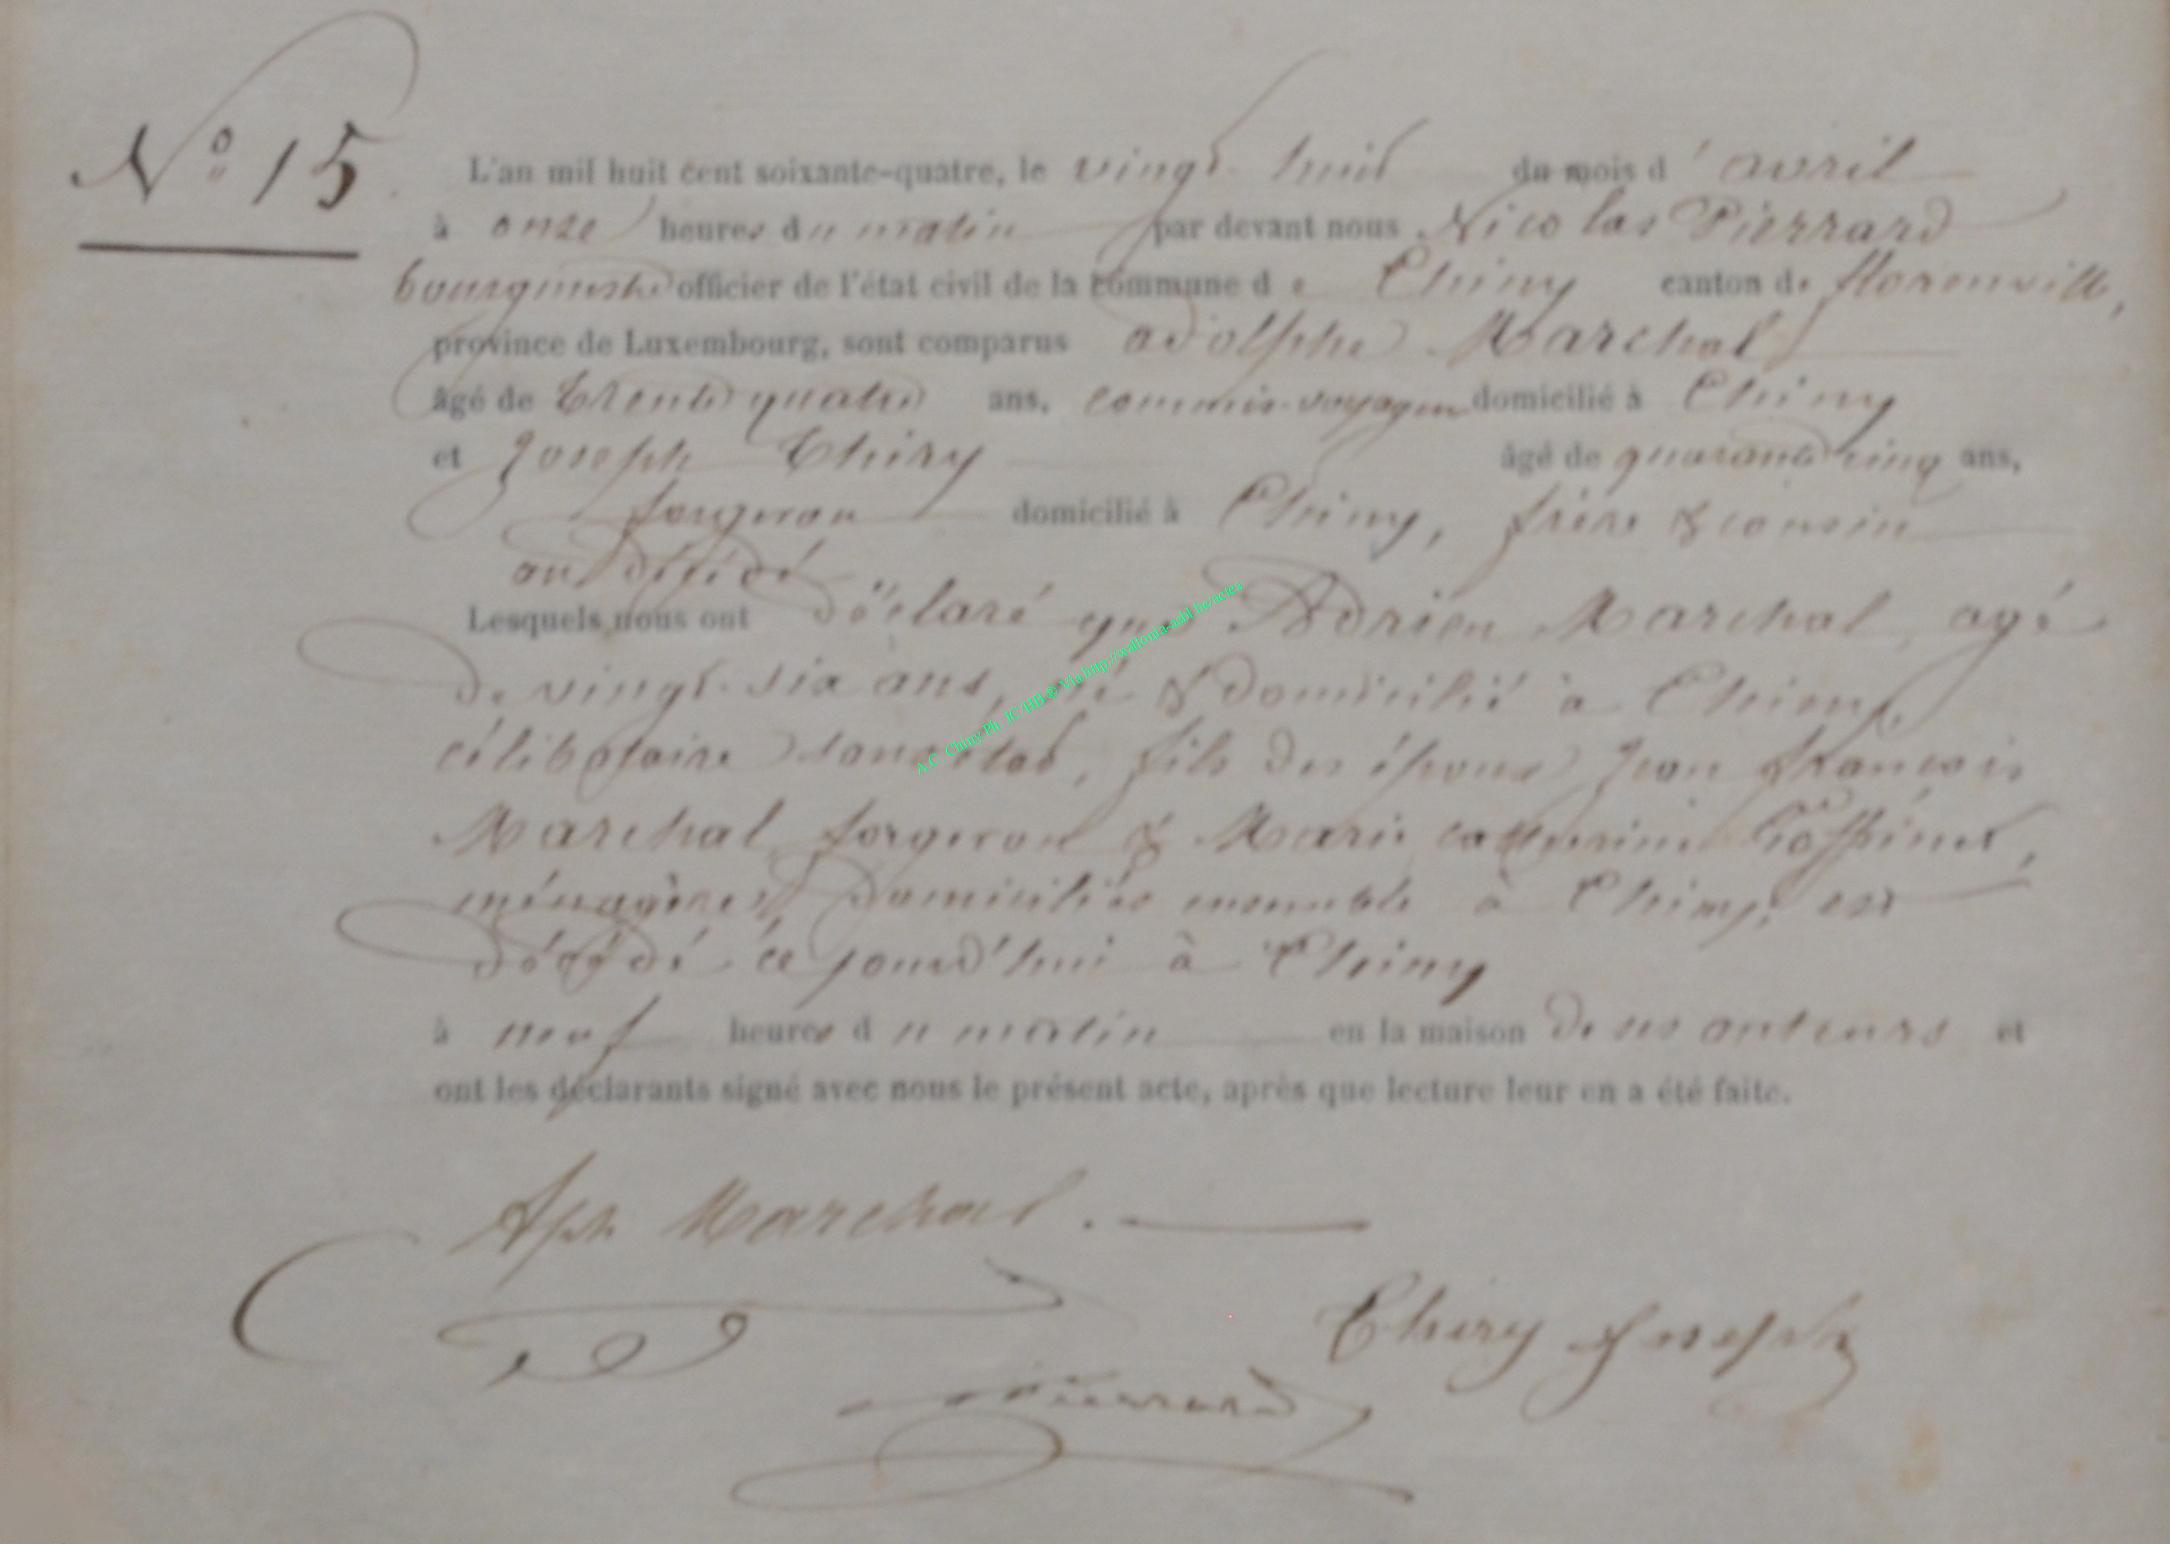 N° 15
L'an mil huit cent soixante-quatre, le vingt-huit du mois d'avril
à onze heures du matin par devant nous Nicolas Pierrard
bourgmestre officier de l'état civil de la commune de Chiny canton de florenville,
province de Luxembourg, sont comparus adolphe Marchal
âgé de trente quatre ans, commis-voyageur domicilié à Chiny
et Joseph Thiry âgé de quarante cinq ans,
forgeron domicilié à Chiny, frère & cousin
au décédé
Lesquels nous ont déclaré que Adrien Marchal, agé
de vingt-six ans, né & domicilié à Chiny,
célibataire sans état, fils des époux Jean françois
Marchal forgeron & Marie catherine
ménagère, domiciliés ensemble à Chiny, est
décédé ce jourd'hui à Chiny
à neuf heures du matin en la maison de ses auteurs et
ont les déclarants signé avec nous le présent acte, après que lecture leur en a été faite.
Aph Marchal.
Thiry Joseph
Pierrard
A.C. Chiny-Ph. JC-HB © Via http://wallonia-asbl.be/actes